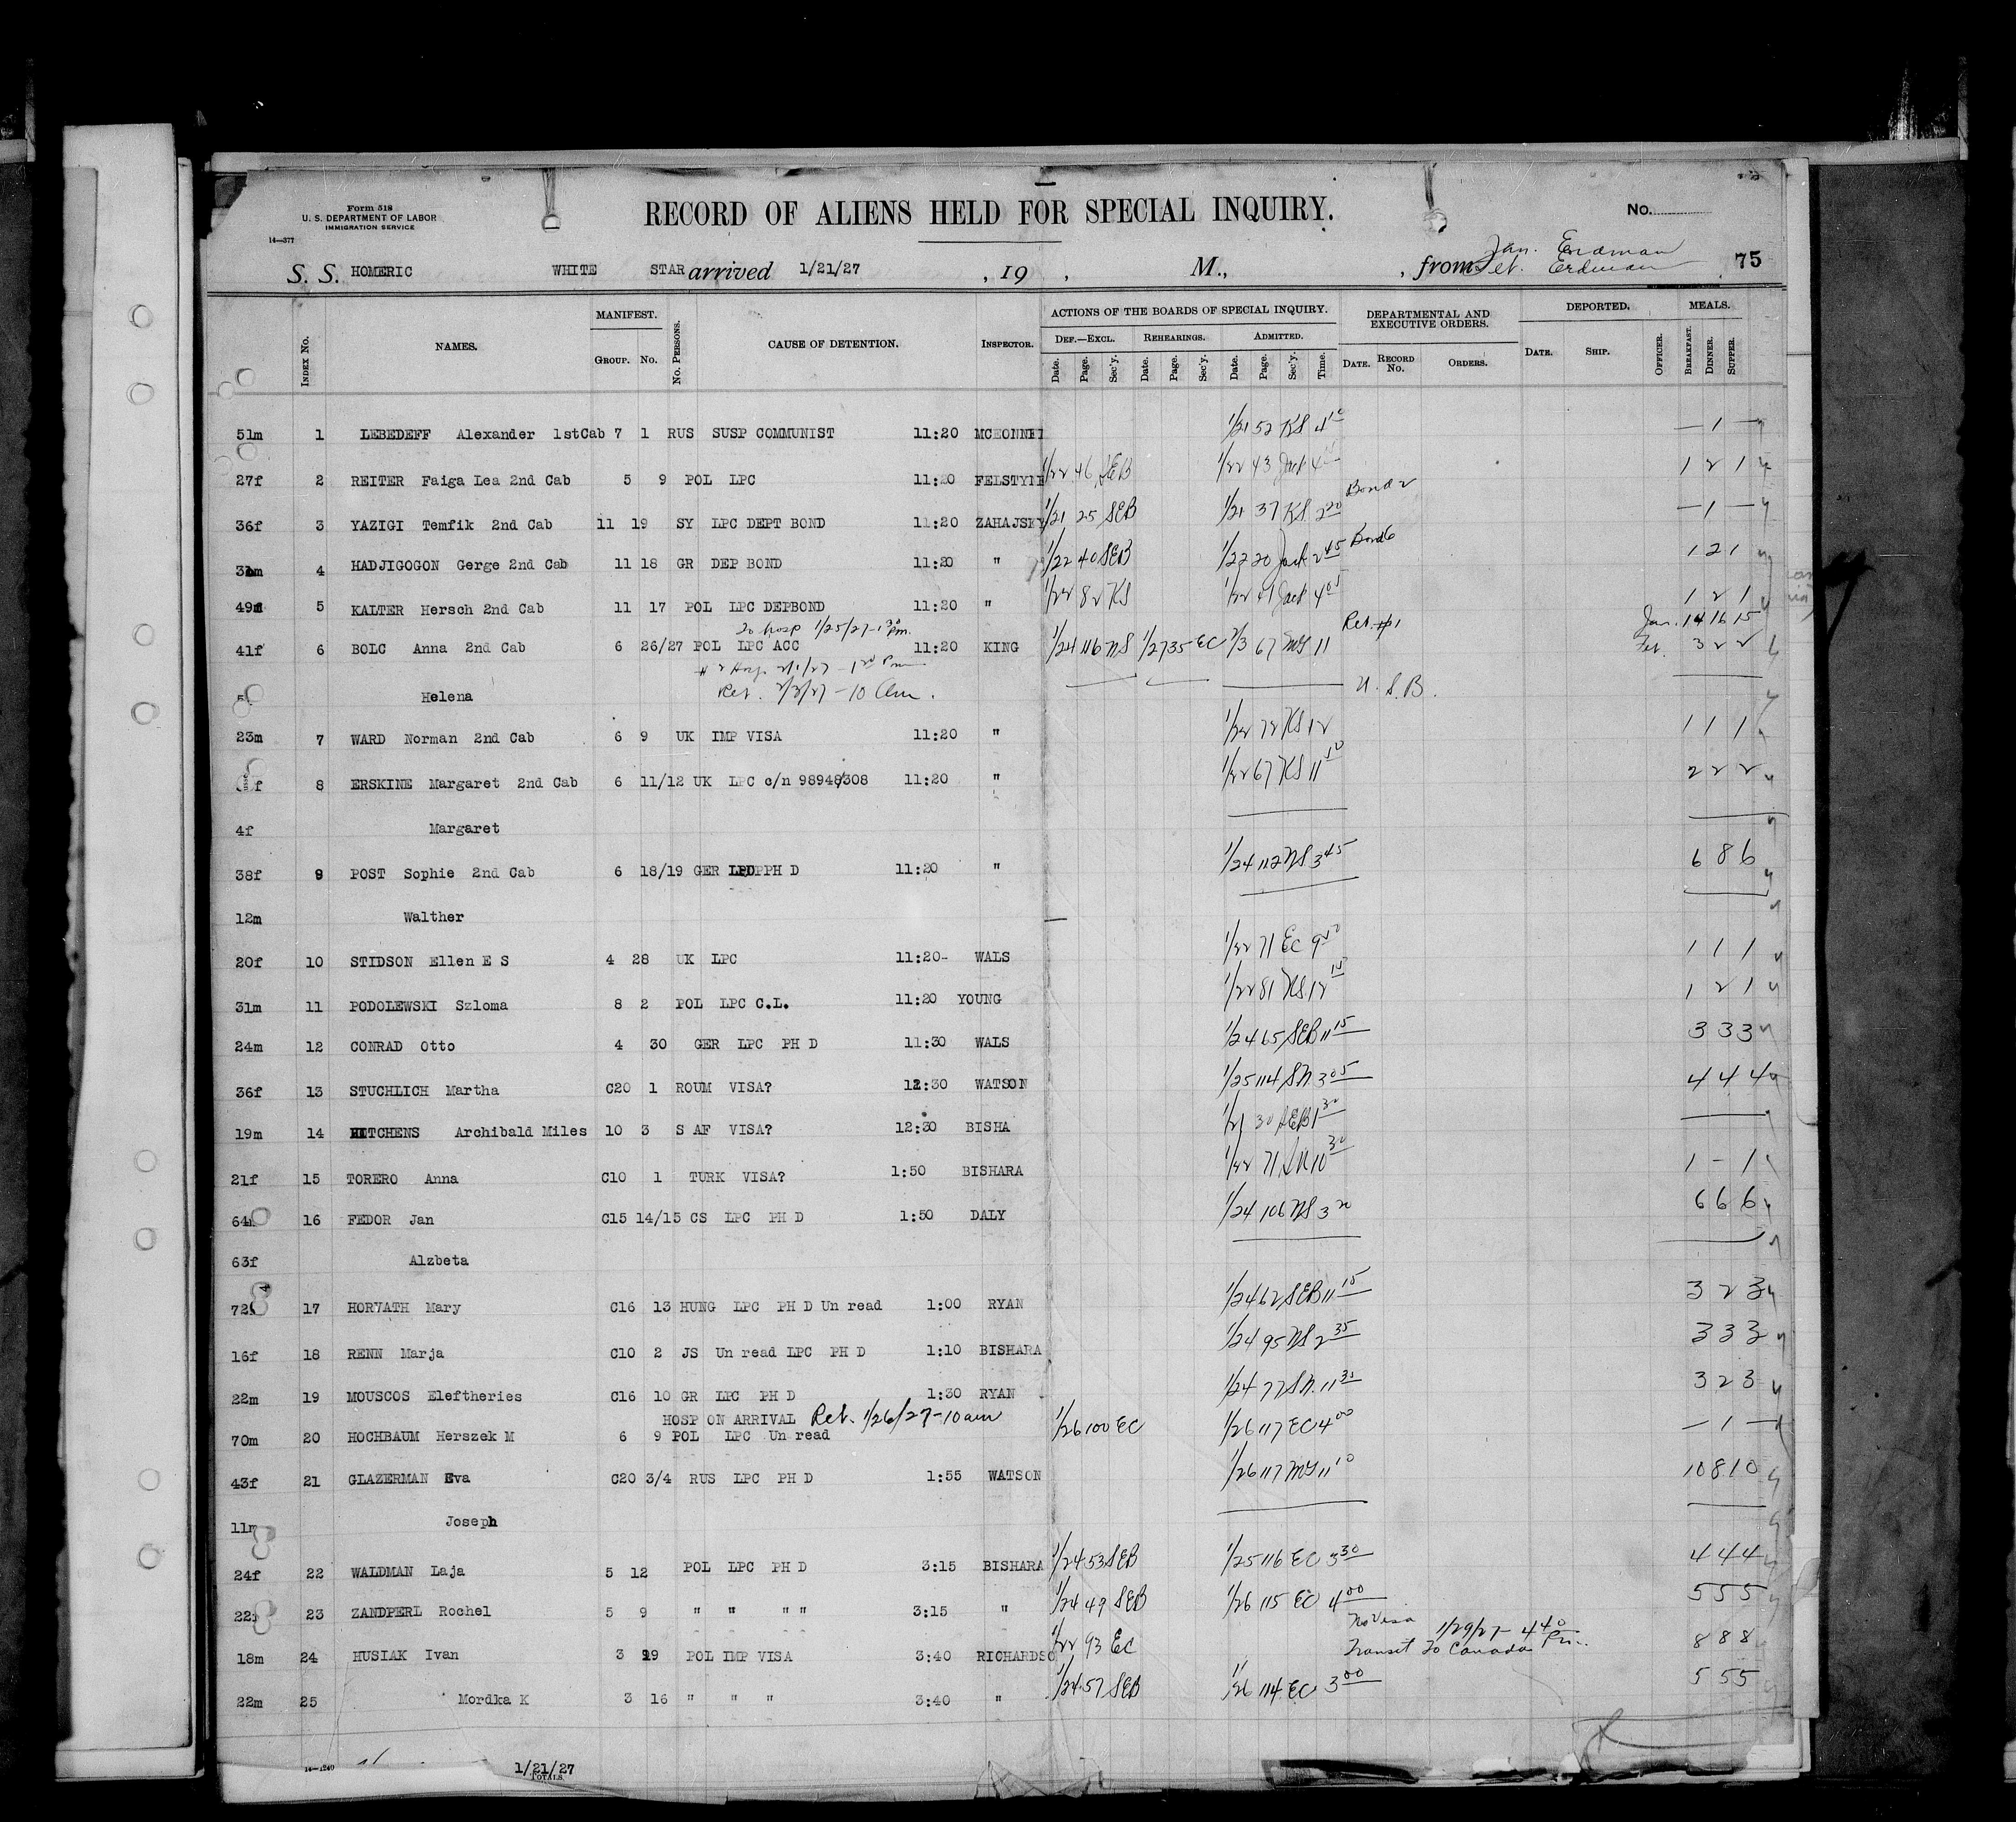 Form 518
U. S. DEPARTMENT OF LABOR
IMMIGRATION SERVICE
14—377
RECORD OF ALIENS HELD FOR SPECIAL INQUIRY.
No.
Jan. Erdman
S. S. HOMERIC WHITE STAR arrived 1/21/27, 19 , M., , from Erdman 75
INDEX No. NAMES. MANIFEST. GROUP. No. No. PERSONS. CAUSE OF DETENTION. INSPECTOR.
ACTIONS OF THE BOARDS OF SPECIAL INQUIRY. DEPARTMENTAL AND EXECUTIVE ORDERS. DEPORTED. MEALS.
DEF.—EXCL. REHEARINGS. ADMITTED.
Date. Page. Sec'y. Date. Page. Sec'y. Date. Page. Sec'y. Time. DATE. RECORD No. ORDERS. DATE. SHIP. OFFICER. BREAKFAST. DINNER. SUPPER.
51m 1 LEBEDEFF Alexander 1stCab 7 1 RUS SUSP COMMUNIST 11:20 1/21 52 KS 4 10 — 1 —
27f 2 REITER Faiga Lea 2nd Cab 5 9 POL LPC 11:20 1/22 46 SEB 1/22 43 Jack 1 2 1
36f 3 YAZIGI Temfik 2nd Cab 11 19 SY LPC DEPT BOND 11:20 ZAHAJSKY 1/21 25 SEB 1/21 37 KS 2 20 Bond 2 — 1 —
4 HADJIGOGON Gerge 2nd Cab 11 18 GR DEP BOND 11:20 " 1/22 40 SEB 1/22 20 Jack 2 45 Bond 6 1 2 1
5 KALTER Hersch 2nd Cab 11 17 POL LPC DEPBOND 11:20 " 1/22 82 KS 1/22 Jack 4 05 1 2 1
To hosp 1/25/27-1 30 Pm. Jan. 14 16 15
41f 6 BOLC Anna 2nd Cab 6 26/27 POL LPC ACC 11:20 KING 1/24 116 NS 1/27 35 EC 2/3 67 MG 11 Ret. #1 Fe. 3 2 2
Helena Ret. 2/3/27-10 Am. U. S. B.
23m 7 WARD Norman 2nd Cab 6 9 UK IMP VISA 11:20 " 1/22 72 KS 12 1 1 1
8 ERSKINE Margaret 2nd Cab 6 11/12 UK LPC c/n 98948/308 11:20 " 1/22 67 KS 11 10 2 2 2
4f Margaret
38f 9 POST Sophie 2nd Cab 6 18/19 GER PH D 11:20 " 1/24 112 NS 3 45 6 8 6
12m Walther
20f 10 STIDSON Ellen E S 4 28 UK LPC 11:20- WALS 1/22 71 EC 1 1 1
31m 11 PODOLEWSKI Szloma 8 2 POL LPC C.L. 11:20 YOUNG 1/22 81 KS 12 10 1 2 1
24m 12 CONRAD Otto 4 30 GER LPC PH D 11:30 WALS 1/24 65 SEB 11 15 3 3 3
36f 13 STUCHLICH Martha C20 1 ROUM VISA? 12:30 WATSON 1/25 114 SN 3 05 4 4 4
19m 14 HITCHENS Archibald Miles 10 3 S AF VISA? 12:30 BISHA 1/21 30 SEB 1 30
21f 15 TORERO Anna C10 1 TURK VISA? 1:50 BISHARA 1/22 71 SN 10 30 1 - 1
16 FEDOR Jan C15 14/15 CS LPC PH D 1:50 DALY 1/24 106 NS 3 20 6 6 6
63f Alzbeta
17 HORVATH Mary C16 13 HUNG LPC PH D Un read 1:00 RYAN 1/24 62 SEB 11 15 3 2 3
16f 18 RENN Marja C10 2 JS Un read LPC PH D 1:10 BISHARA 1/24 95 NS 2 35 3 3 3
22m 19 MOUSCOS Eleftheries C16 10 GR LPC PH D 1:30 RYAN 1/24 77 SN 11 35 3 2 3
HOSP ON ARRIVAL Ret. 1/26/27-10am
70m 20 HOCHBAUM Herszek M 6 9 POL LPC Un read 1/26 100 EC 1/26 117 EC 4 00 — 1 —
43f 21 GLAZERMAN Eva C20 3/4 RUS LPC PH D 1:55 WATSON 1/26 117 MG 11 10 10 8 10
Joseph
24f 22 WALDMAN Laja 5 12 POL LPC PH D 3:15 BISHARA 1/24 53 SEB 1/25 116 EC 3 30 4 4 4
23 ZANDPERL Rochel 5 9 " " " " 3:15 " 1/24 49 SEB 1/26 115 EC 4 00 5 5 5
No Visa 1/29/27- 4 40
18m 24 HUSIAK Ivan 3 POL IMP VISA 3:40 RICHARDSO 1/22 93 EC Transit To Canada Pm. 8 8 8
22m 25 Mordka K 3 16 " " " 3:40 " 1/24 57 SEB 1/26 114 EC 3 00 5 5 5
14—1240 1/21/27
TOTALS